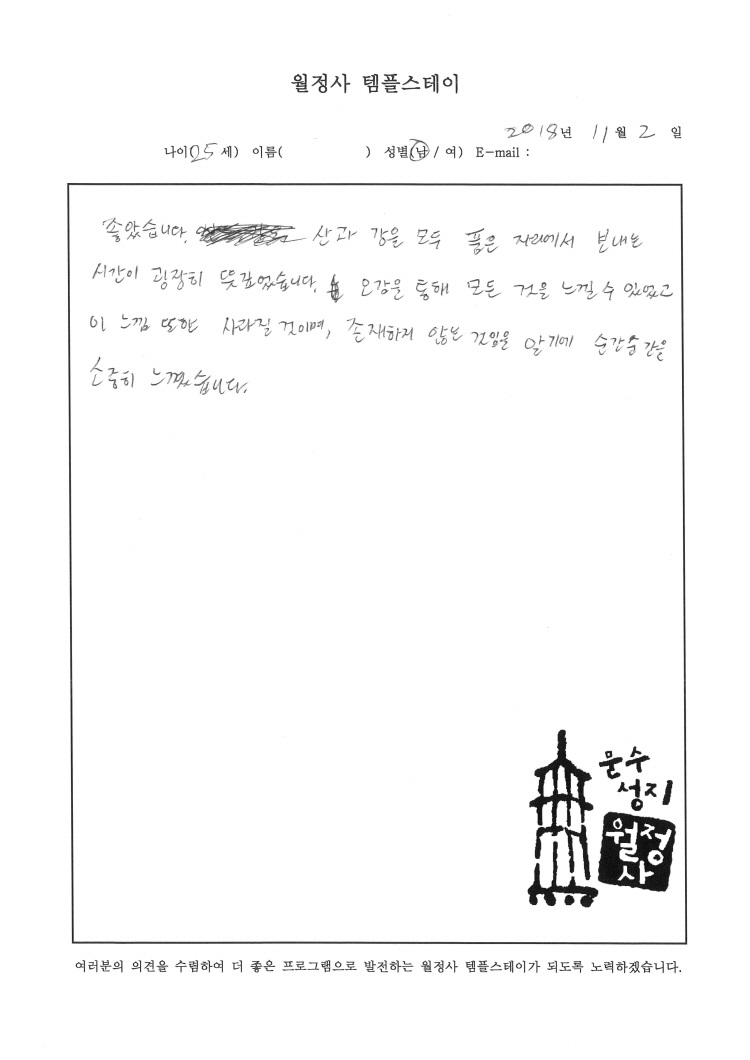 월정사 템플스테이
2018년 11월 2일
나이(25세) 이름( ) 성별(남/여) E-mail :
좋았습니다. 산과 강을 모두 품은 자리에서 보내는
시간이 굉장히 뜻깊었습니다. 오감을 통해 모든 것을 느낄 수 있었고
이 느낌 또한 사라질 것이며, 존재하지 않는 것임을 알기에 순간순간을
소중히 느꼈습니다.
문수
성지
월정
사
여러분의 의견을 수렴하여 더 좋은 프로그램으로 발전하는 월정사 템플스테이가 되도록 노력하겠습니다.